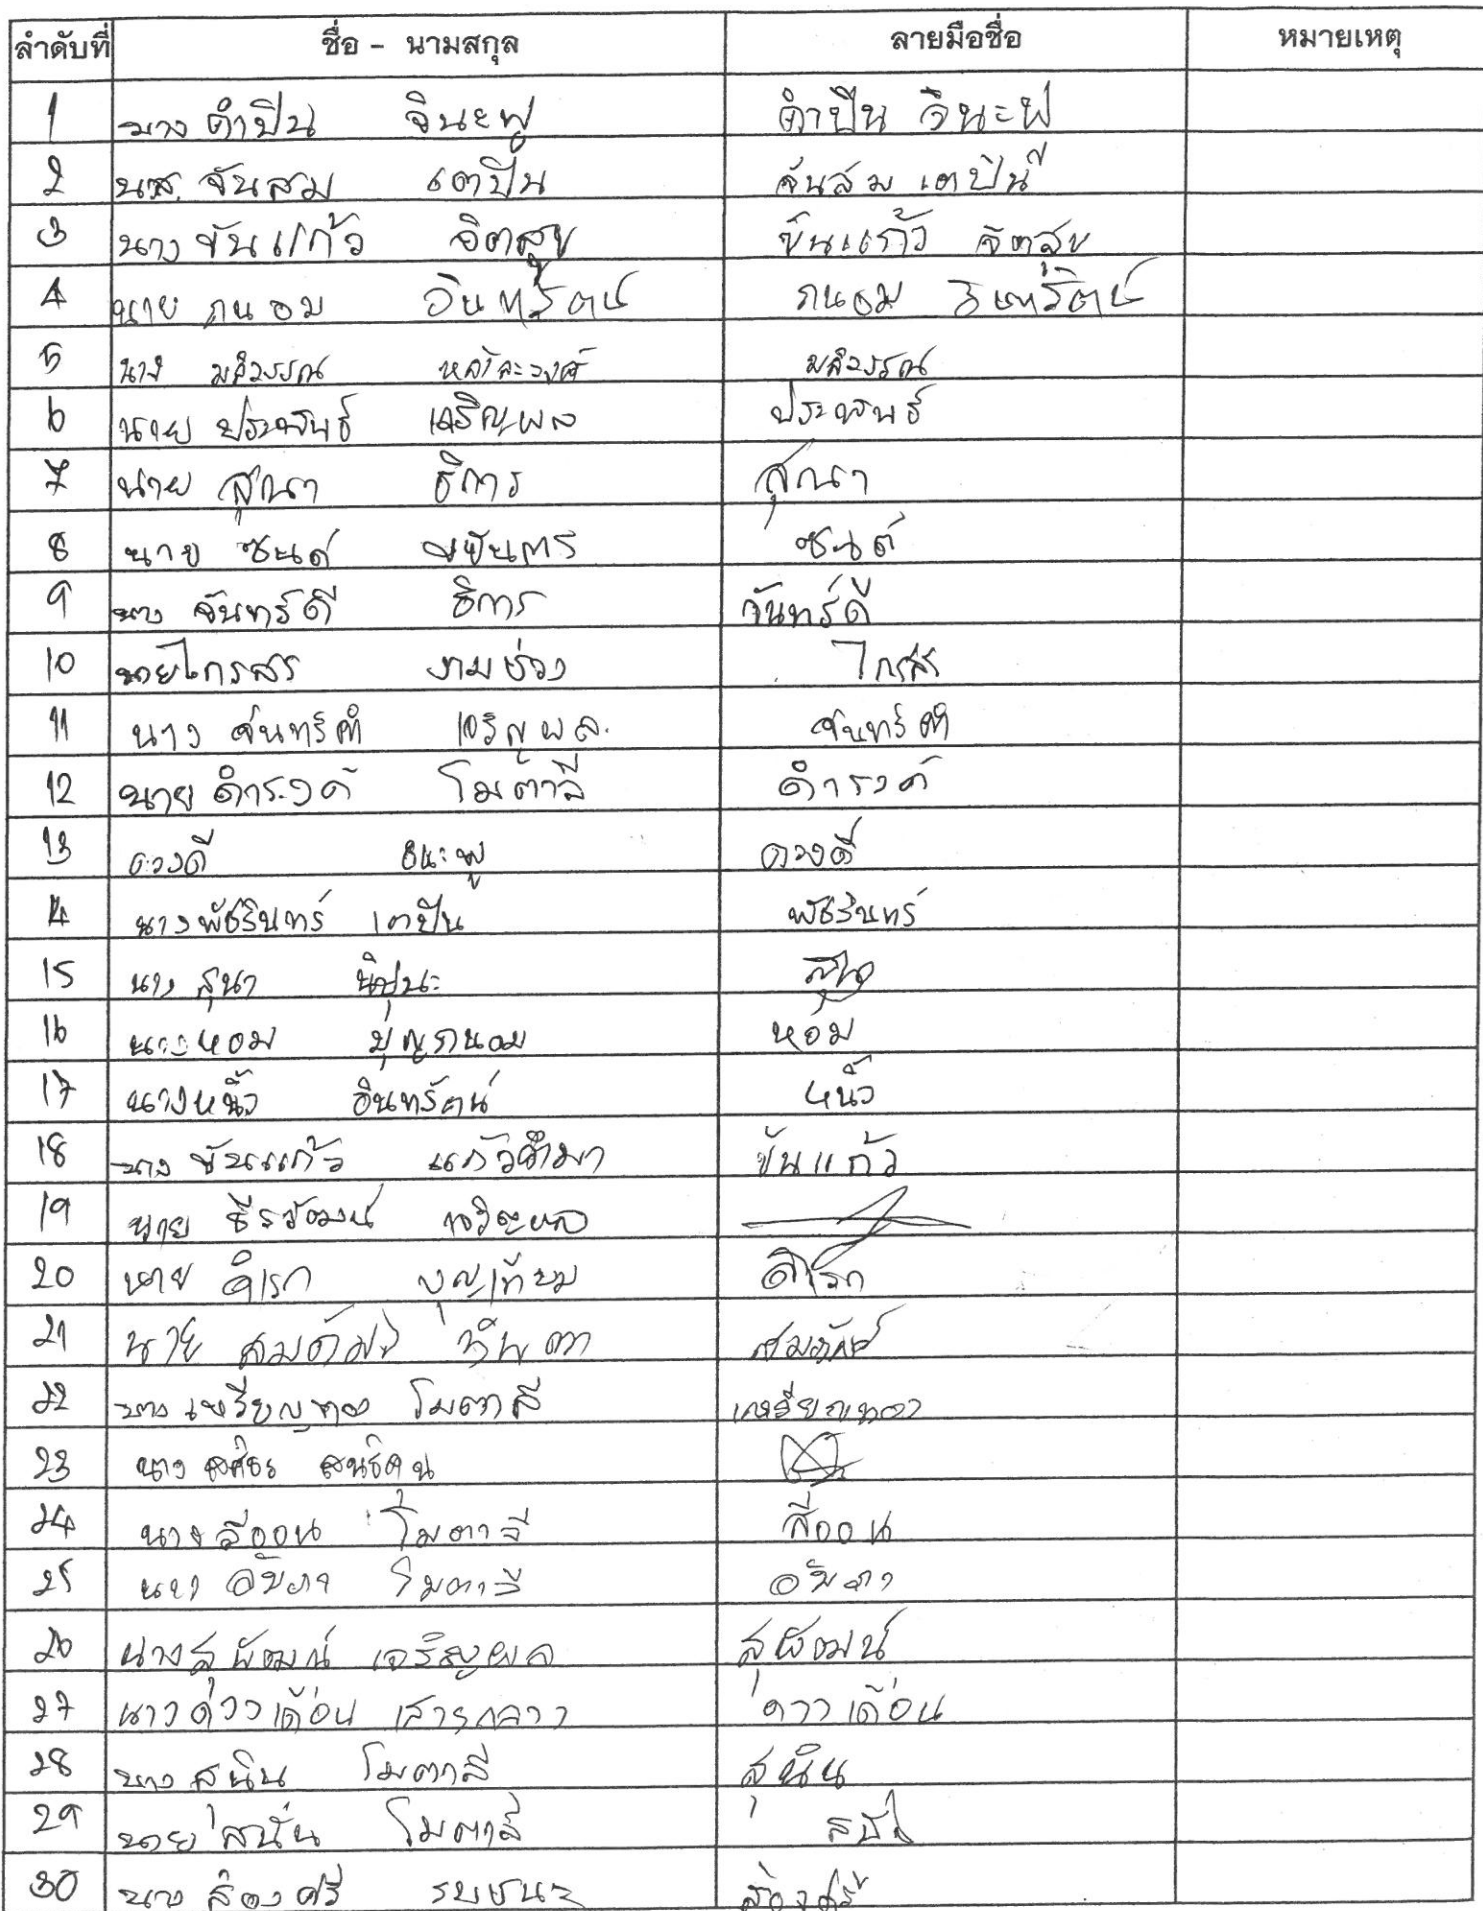 ลำดับที่ ชื่อ - นามสกุล ลายมือชื่อ หมายเหตุ
1 นาง คำปิน จินะฟู คำปิน จินะฟู
2 นส. จันสม เตปิน จันสม เตปิน
3 นาง ขันแก้ว จิตสุข ขันแก้ว จิตสุข
4 นาย ถนอม อินทรัตน์ ถนอม อินทรัตน์
5 นาง มลิวรรณ มลิวรรณ
6 นาย ประพันธ์ เจริญผล ประพันธ์
7 นาย สุณา ธิการ สุณา
8 นาย ซันด์
9 นาง จันทร์ดี ธิการ จันทร์ดี
10 นายไกรสร งามช่วง ไกรสร
11 นาง จันทร์คำ เจริญผล. จันทร์คำ
12 นาย ดำรงค์ โมตาลี ดำรงค์
13 ดวงดี ธนะฟู ดวงดี
14 นางพัชรินทร์ เตปิน พัชรินทร์
15 นาง สุนา
16 นางหอม บุญถนอม หอม
17 นางหนิ้ว อินทรัตน์ หนิ้ว
18 นาง ขันแก้ว แก้วคำมา ขันแก้ว
19 นาย ธีรวัฒน์ เจริญผล
20 นาย ดิเรก บุญเทียม ดิเรก
21 นาย
22 นาง เหรียญทอง โมตาลี เหรียญทอง
23 นาง
24 นาง สีออน โมตาลี สีออน
25 นาง โมตาลี
26 นางสุพัฒน์ เจริญผล สุพัฒน์
27 นาง ดาวเดือน ดาวเดือน
28 นาง สุนิน โมตาลี สุนิน
29 นาย สนั่น โมตาลี
30 นาง ส่องศรี ส่องศรี